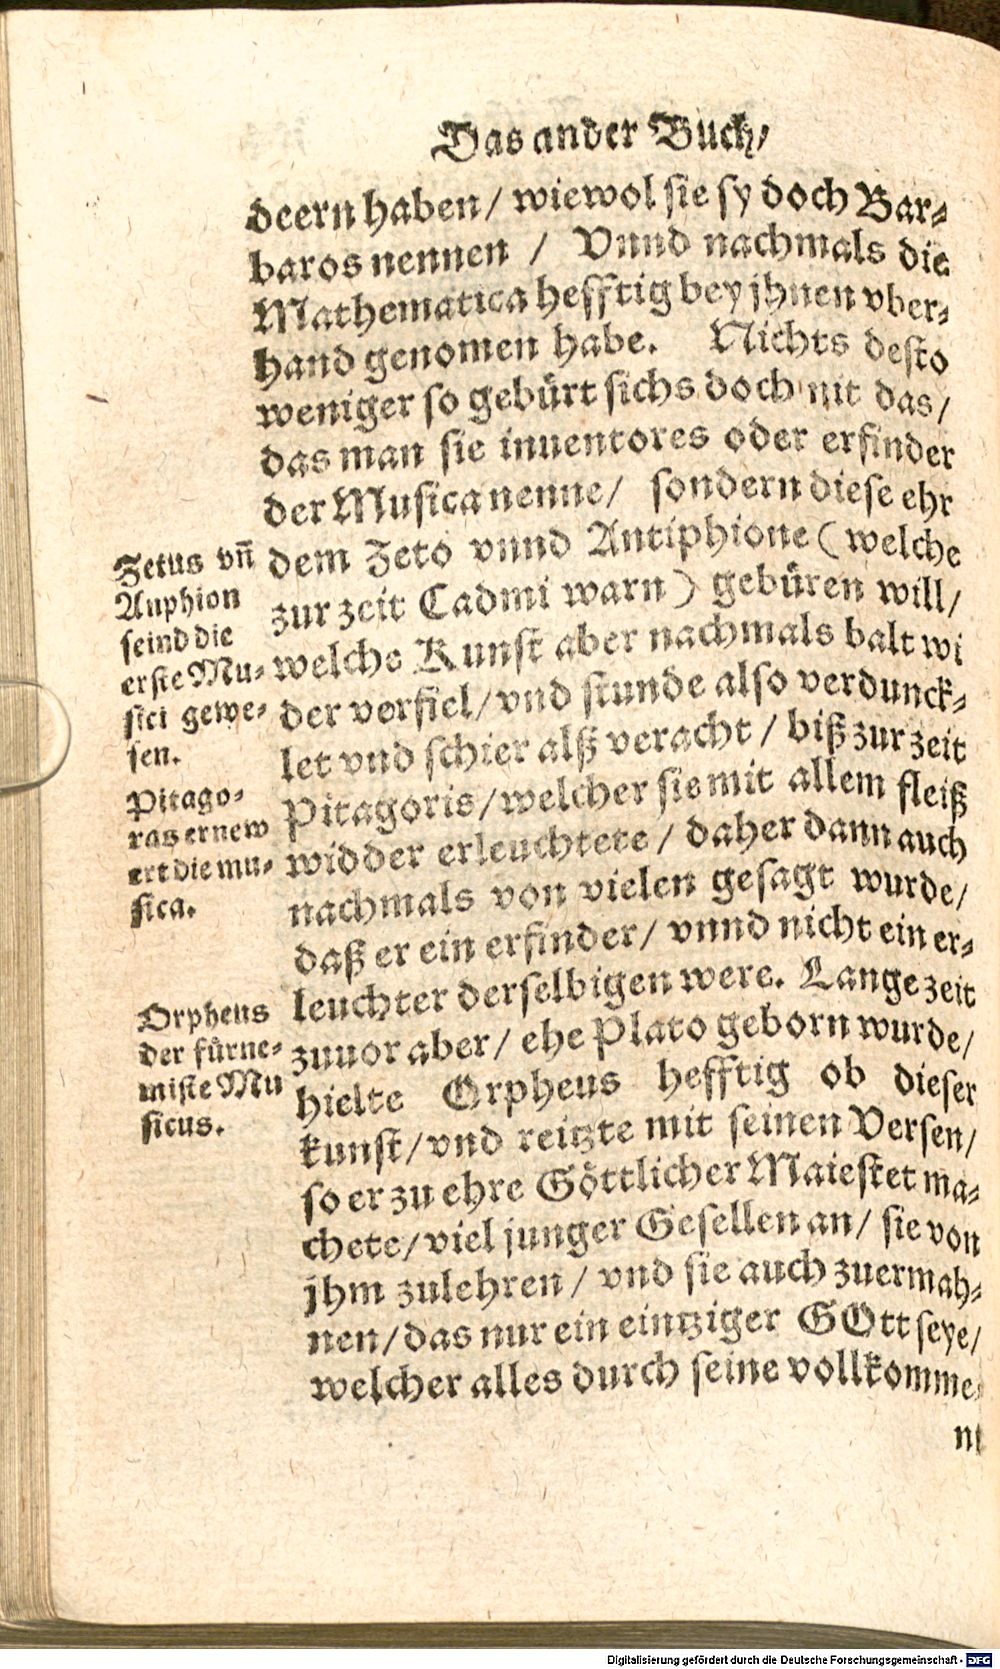 Das ander Buch/
deern haben/ wiewol sie sy doch Bar-
baros nennen / Vnnd nachmals die
Mathematica hefftig bey jhnen vber-
hand genomen habe. Nichts desto
weniger so gebürt sichs doch nit das/
das man sie inuentores oder erfinder
der Musica nenne/ sondern diese ehr
dem Zeto vnnd Antiphione (welche
zur zeit Cadmi warn) gebüren will/
welche Kunst aber nachmals balt wi
der verfiel/ vnd stunde also verdunck-
let vnd schier alß veracht / biß zur zeit
Pitagoris/ welcher sie mit allem fleiß
widder erleuchtete / daher dann auch
nachmals von vielen gesagt wurde/
daß er ein erfinder/ vnnd nicht ein er-
leuchter derselbigen were. Lange zeit
zuuor aber/ ehe Plato geborn wurde/
hielte Orpheus hefftig ob dieser
kunst/ vnd reitzte mit seinen Versen/
so er zu ehre Göttlicher Maiestet ma-
chete/ viel junger Gesellen an/ sie von
jhm zulehren/ vnd sie auch zuermah-
nen/ das nur ein eintziger GOtt seye/
welcher alles durch seine vollkomme-
Zetus vñ
Anphion
seind die
erste Mu-
sici gewe-
sen.
Pitago-
ras ernew
ert die mu-
sica.
Orpheus
der fürne-
miste Mu
sicus.
Digitalisierung gefördert durch die Deutsche Forschungsgemeinschaft - DFG